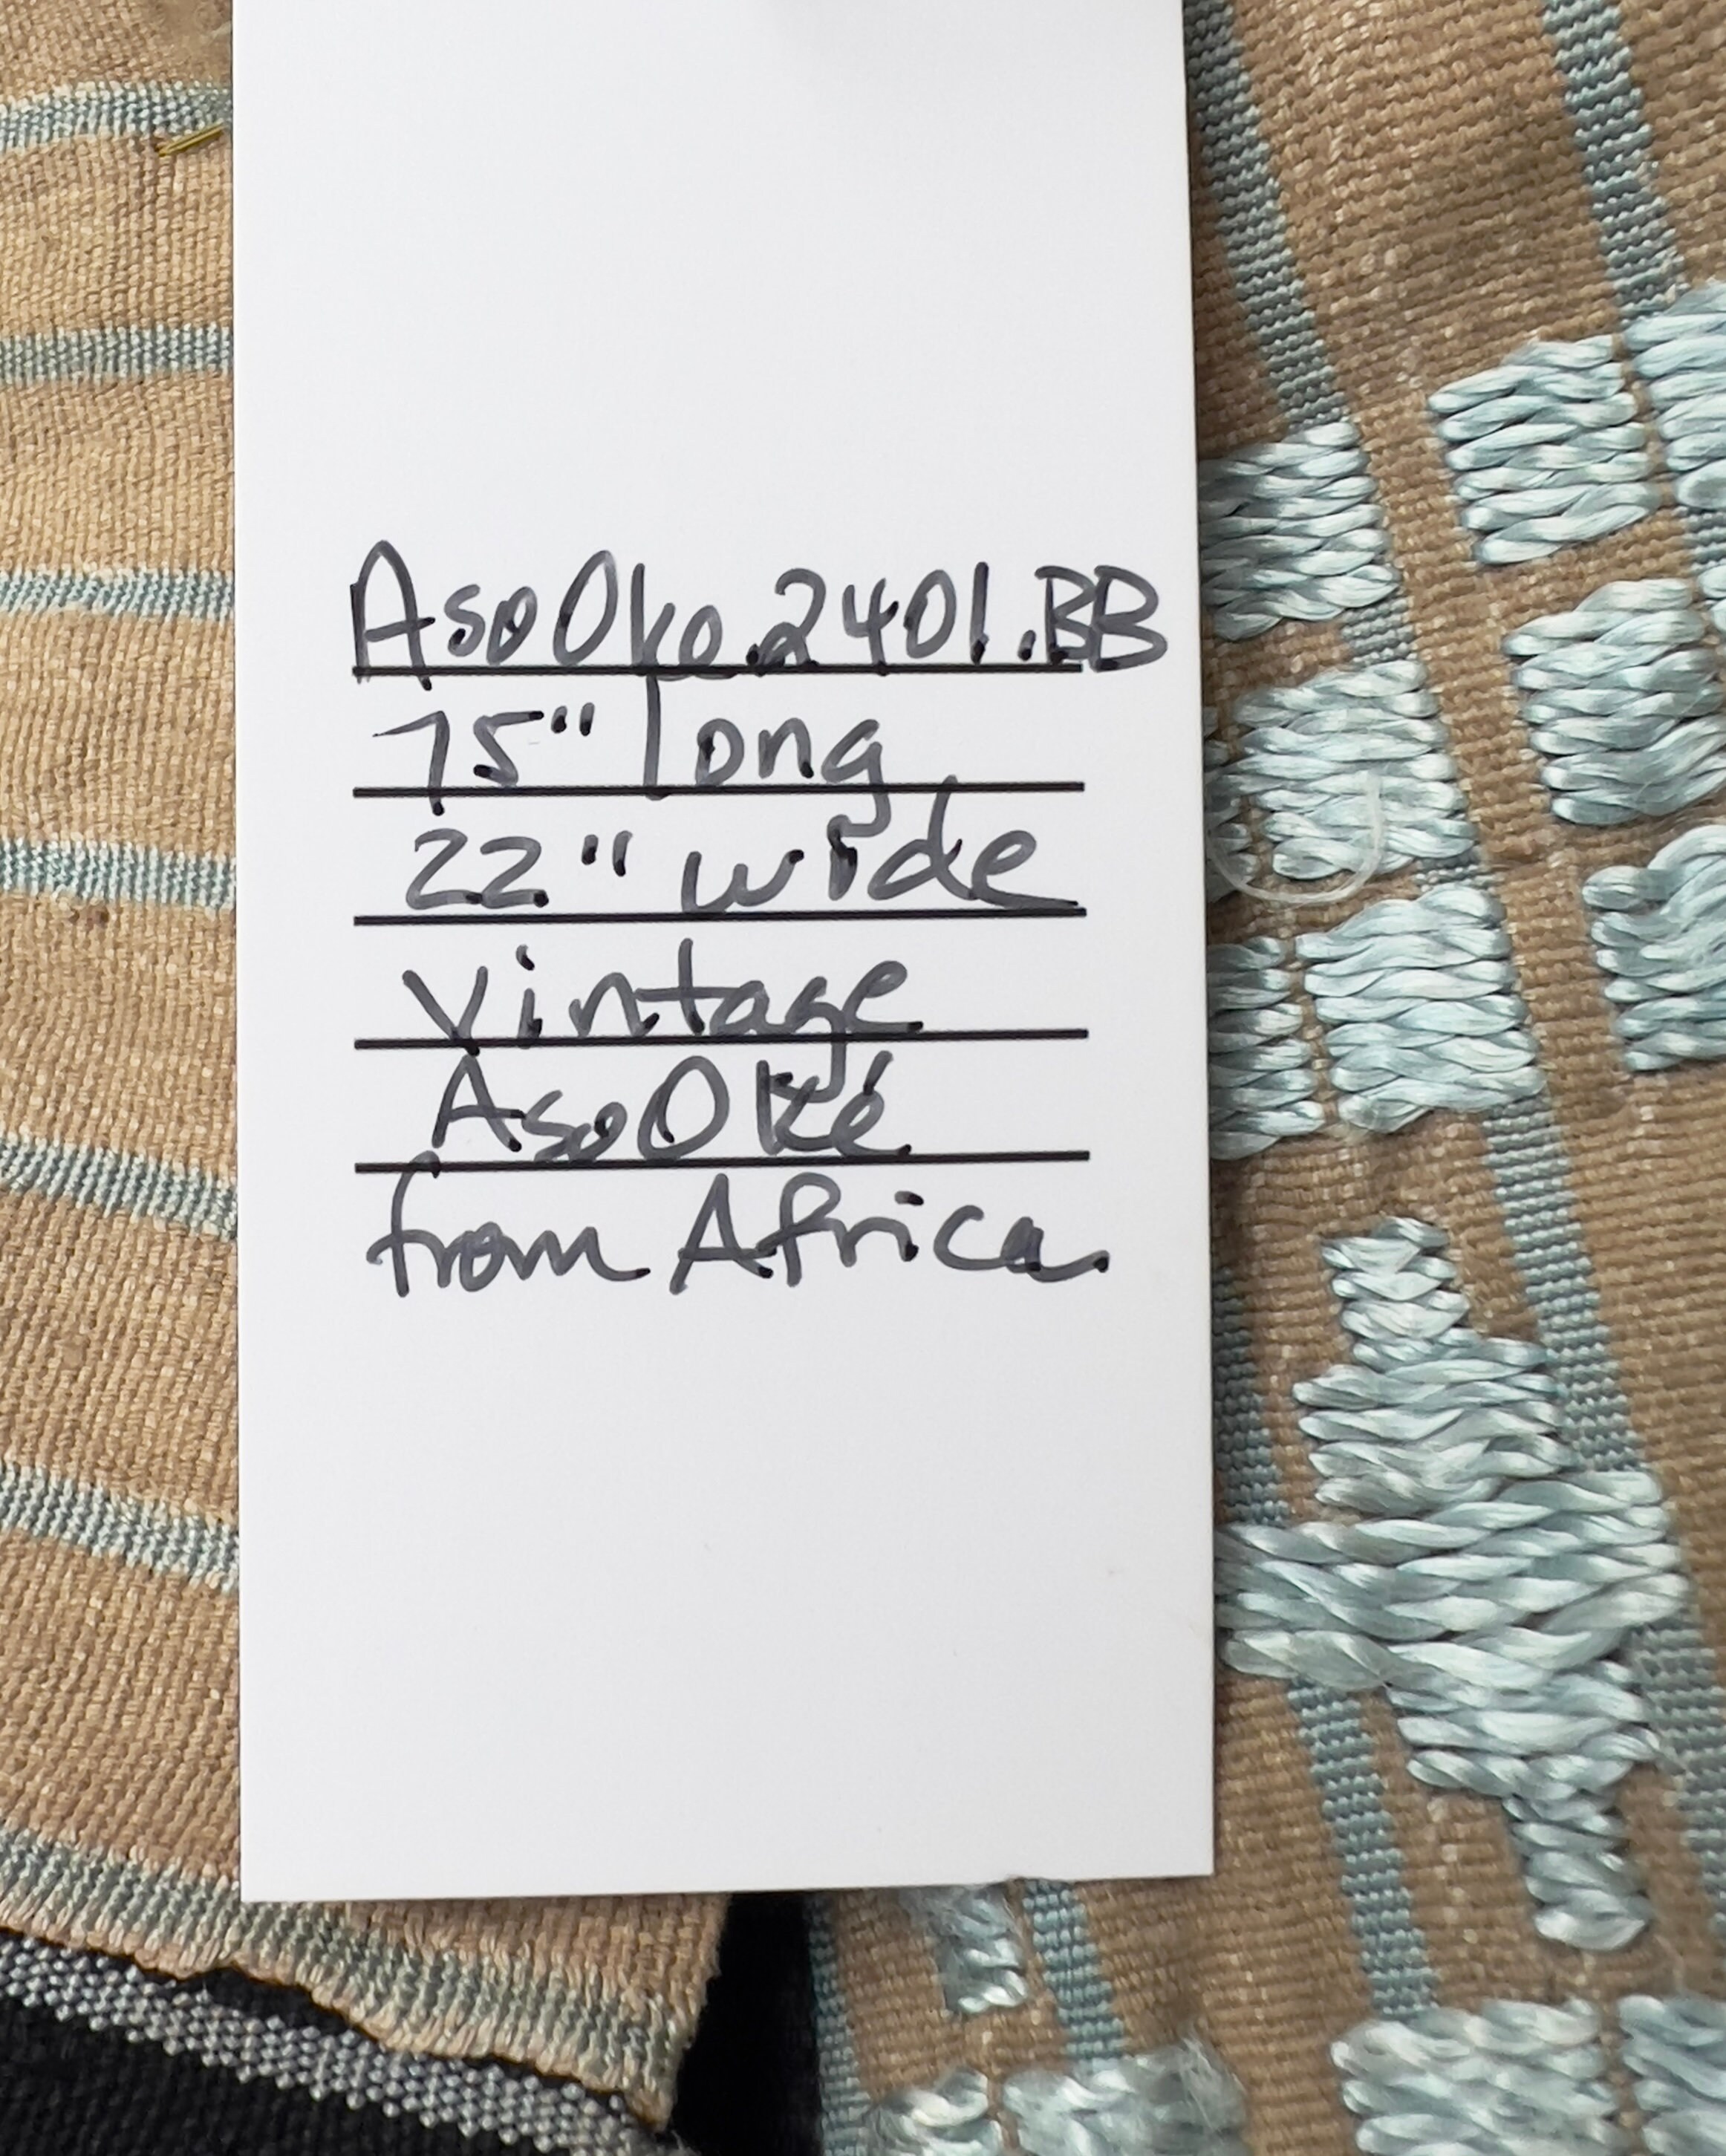 AsoOke.2401.BB
75" long
22" wide
vintage
AsoOké
from Africa